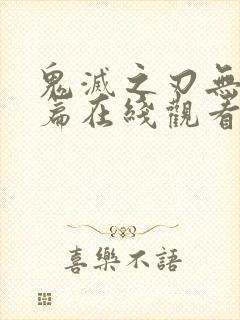 鬼滅之刃無
篇在綫觀看
喜樂不語